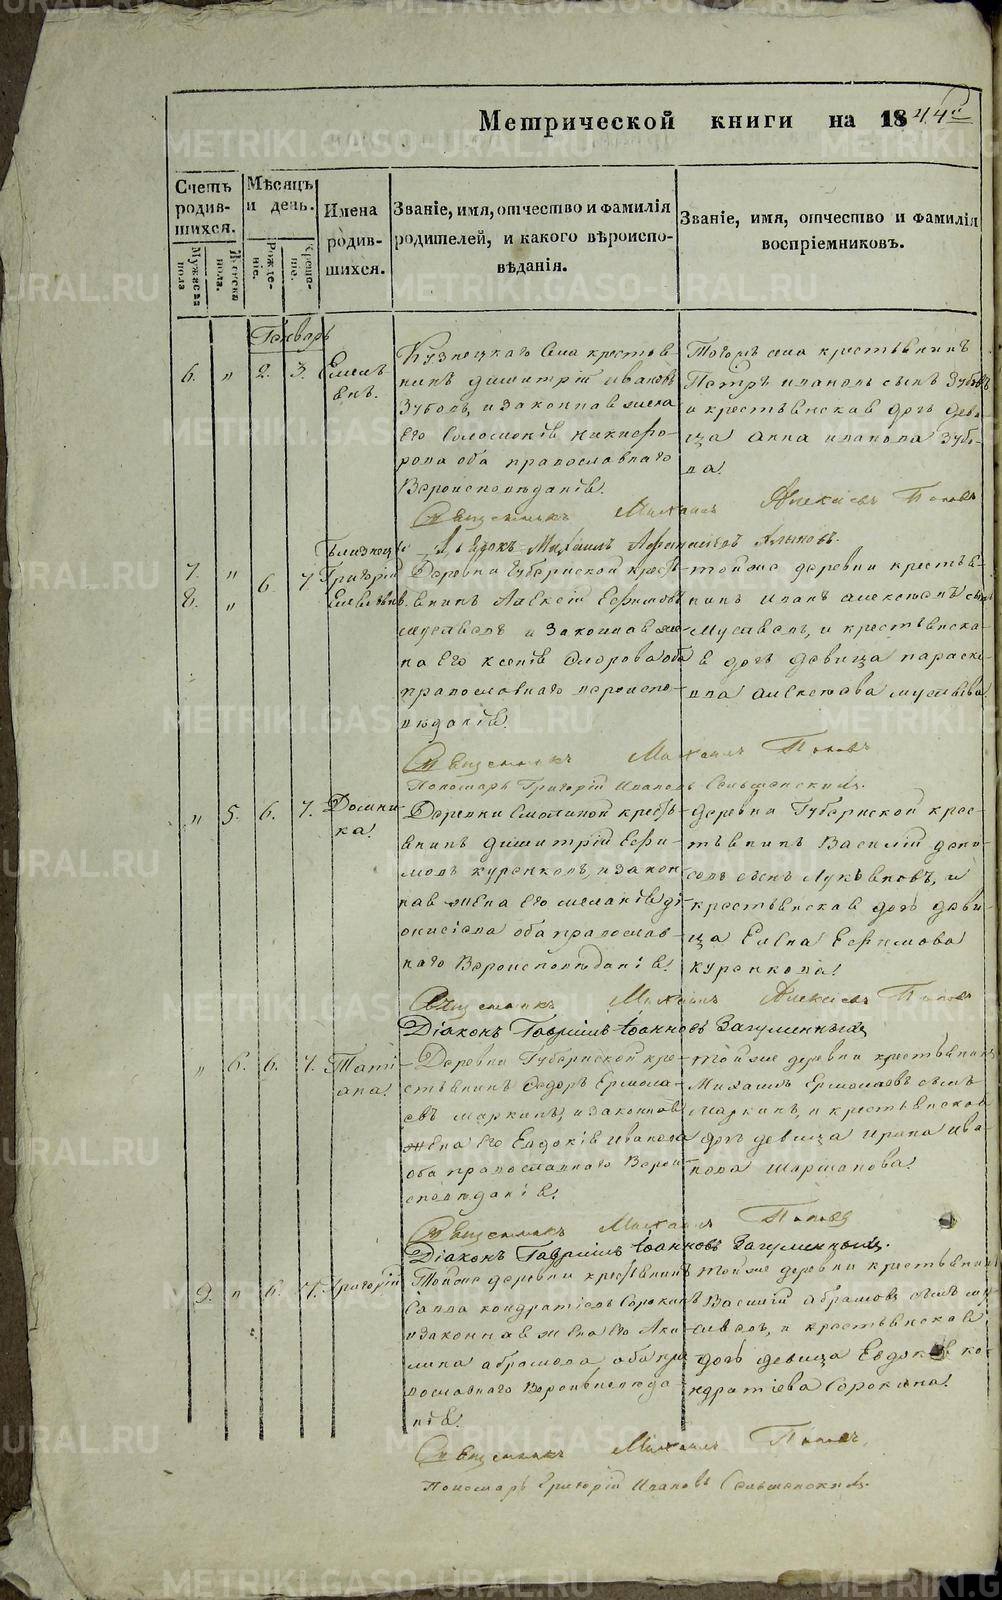 Метрической книги на 1844й
Счетъ родившихся.
Мужеска пола
Женска пола.
Мѣсяцъ и день.
Рожденіе.
Крещеніе.
Имена родившихся.
Званіе, имя, отчество и фамилія родителей, и какого вѣроисповѣданія.
Званіе, имя, отчество и фамилія воспріемниковъ.
Генварь
6. „ 2. 3. Емелѣ-
янъ.
Кузнецкаго села крестья-
нинъ Димитрій Ивановъ
Зубовъ, и законная жена
его Соломонія Никифо-
рова оба православнаго
Вероисповѣданія.
Тогожъ села крестьянинъ
Петръ Ивановъ сынъ Зубовъ
и крестьянская дочь деви-
ца Анна Иванова Зубо-
ва.
Священникъ Михаилъ Алексѣевъ Поповъ
Дьячокъ Михаилъ Афанасьевъ
Близнецы
7. „
8. „
6. 7.
Григорій
Емельянъ.
Деревни Губернской кресть-
янинъ Алексій Ефимовъ
и законная же-
на его Ксенія Федорова оба
православнаго вероиспо-
вѣданія.
тойже деревни крестья-
нинъ Иванъ Алексеевъ сынъ
и крестьянска-
я дочь девица Параске-
ва Алексеева
Священникъ Михаилъ Поповъ
Пономарь Григорій Ивановъ
„ 5. 6. 7. Домни-
ка.
Деревни Смолиной кресть-
янинъ Димитрій Ефи-
мовъ Куренковъ, и закон-
ная жена его Меланія Ді-
онисіева оба православ-
наго Вероисповѣданія.
деревни Губернской крес-
тьянинъ Василій Дени-
совъ сынъ Лукьяновъ, и
крестьянская дочь деви-
ца Елена Ефимова
Куренкова.
Священникъ Михаилъ Алексѣевъ Поповъ
Діаконъ Гавріилъ Іоанновъ Загуменныхъ
„ 6. 6. 7. Тати-
ана.
Деревни Губернской кре-
стьянинъ Федоръ Ермола-
евъ Маркинъ, и законная
жена его Евдокія Иванова
оба православнаго Верои-
сповѣданія.
тойже деревни крестьянинъ
Михаилъ Ермолаевъ сынъ
Маркинъ, и крестьянская
дочь девица Ирина Ива-
нова Шаршапова.
Священникъ Михаилъ Поповъ
Діаконъ Гавріилъ Іоанновъ Загуменныхъ.
9. „ 6. 7. Григорій
Тойже деревни крестьянинъ
Савва Кондратіевъ Сорокинъ
и законная жена его Аки-
лина Абрамова, оба пра-
вославнаго Вероисповѣда-
нія.
тойже деревни крестьянинъ
Василій Абрамовъ сынъ
и крестьянская
дочь девица Евдокія Ко-
ндратіева Сорокина.
Священникъ Михаилъ Поповъ
Пономарь Григорій Ивановъ
METRIKI.GASO-URAL.RU